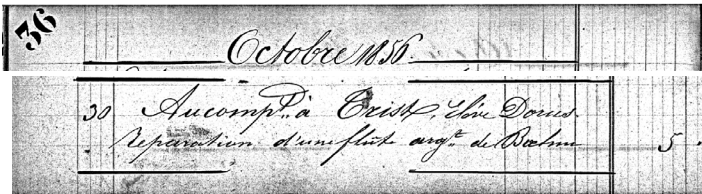 36
Octobre 1856.
30 Au compt. à Trist, élève Dorus.
Reparation d'une flûte argt. de Bœhm 5